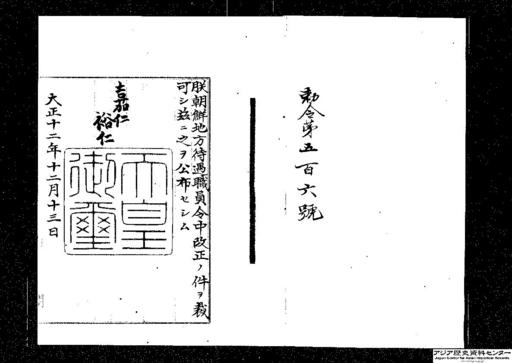 勅令第五百六號
朕朝鮮地方待遇職員令中改正ノ件ヲ裁
可シ玆ニ之ヲ公布セシム
嘉仁
裕仁
天皇
御璽
大正十二年十二月十三日
アジア歴史資料センター
Japan Center for Asian Historical Records